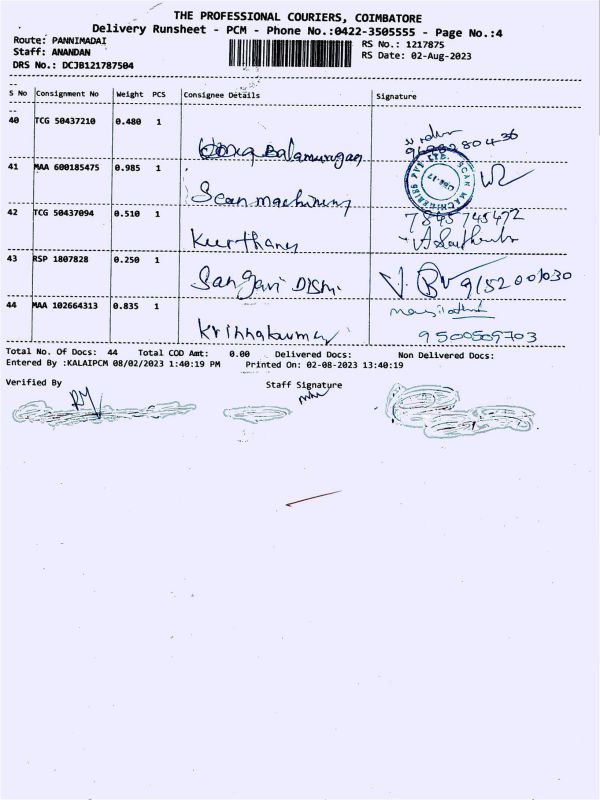 THE PROFESSIONAL COURIERS, COIMBATORE
Delivery Runsheet - PCM - Phone No.:0422-3505555 - Page No.:4
Route: PANNIMADAI
RS No.: 1217875
Staff: ANANDAN
RS Date: 02-Aug-2023
DRS No.: DCJB121787504
S No Consignment No Weight PCS Consignee Details Signature
40 TCG 50437210 0.480 1
Balamurugan
41 MAA 600185475 0.985 1
Scan machinery
SCAN MACHINERIES PVT LTD.
42 TCG 50437094 0.510 1
7845745472
Keerthana
43 RSP 1807828 0.250 1
Sangavi Dish.
44 MAA 102664313 0.835 1
Krishnakumar
9500509703
Total No. Of Docs: 44 Total COD Amt: 0.00 Delivered Docs: Non Delivered Docs:
Entered By :KALAIPCM 08/02/2023 1:40:19 PM Printed On: 02-08-2023 13:40:19
Verified By Staff Signature